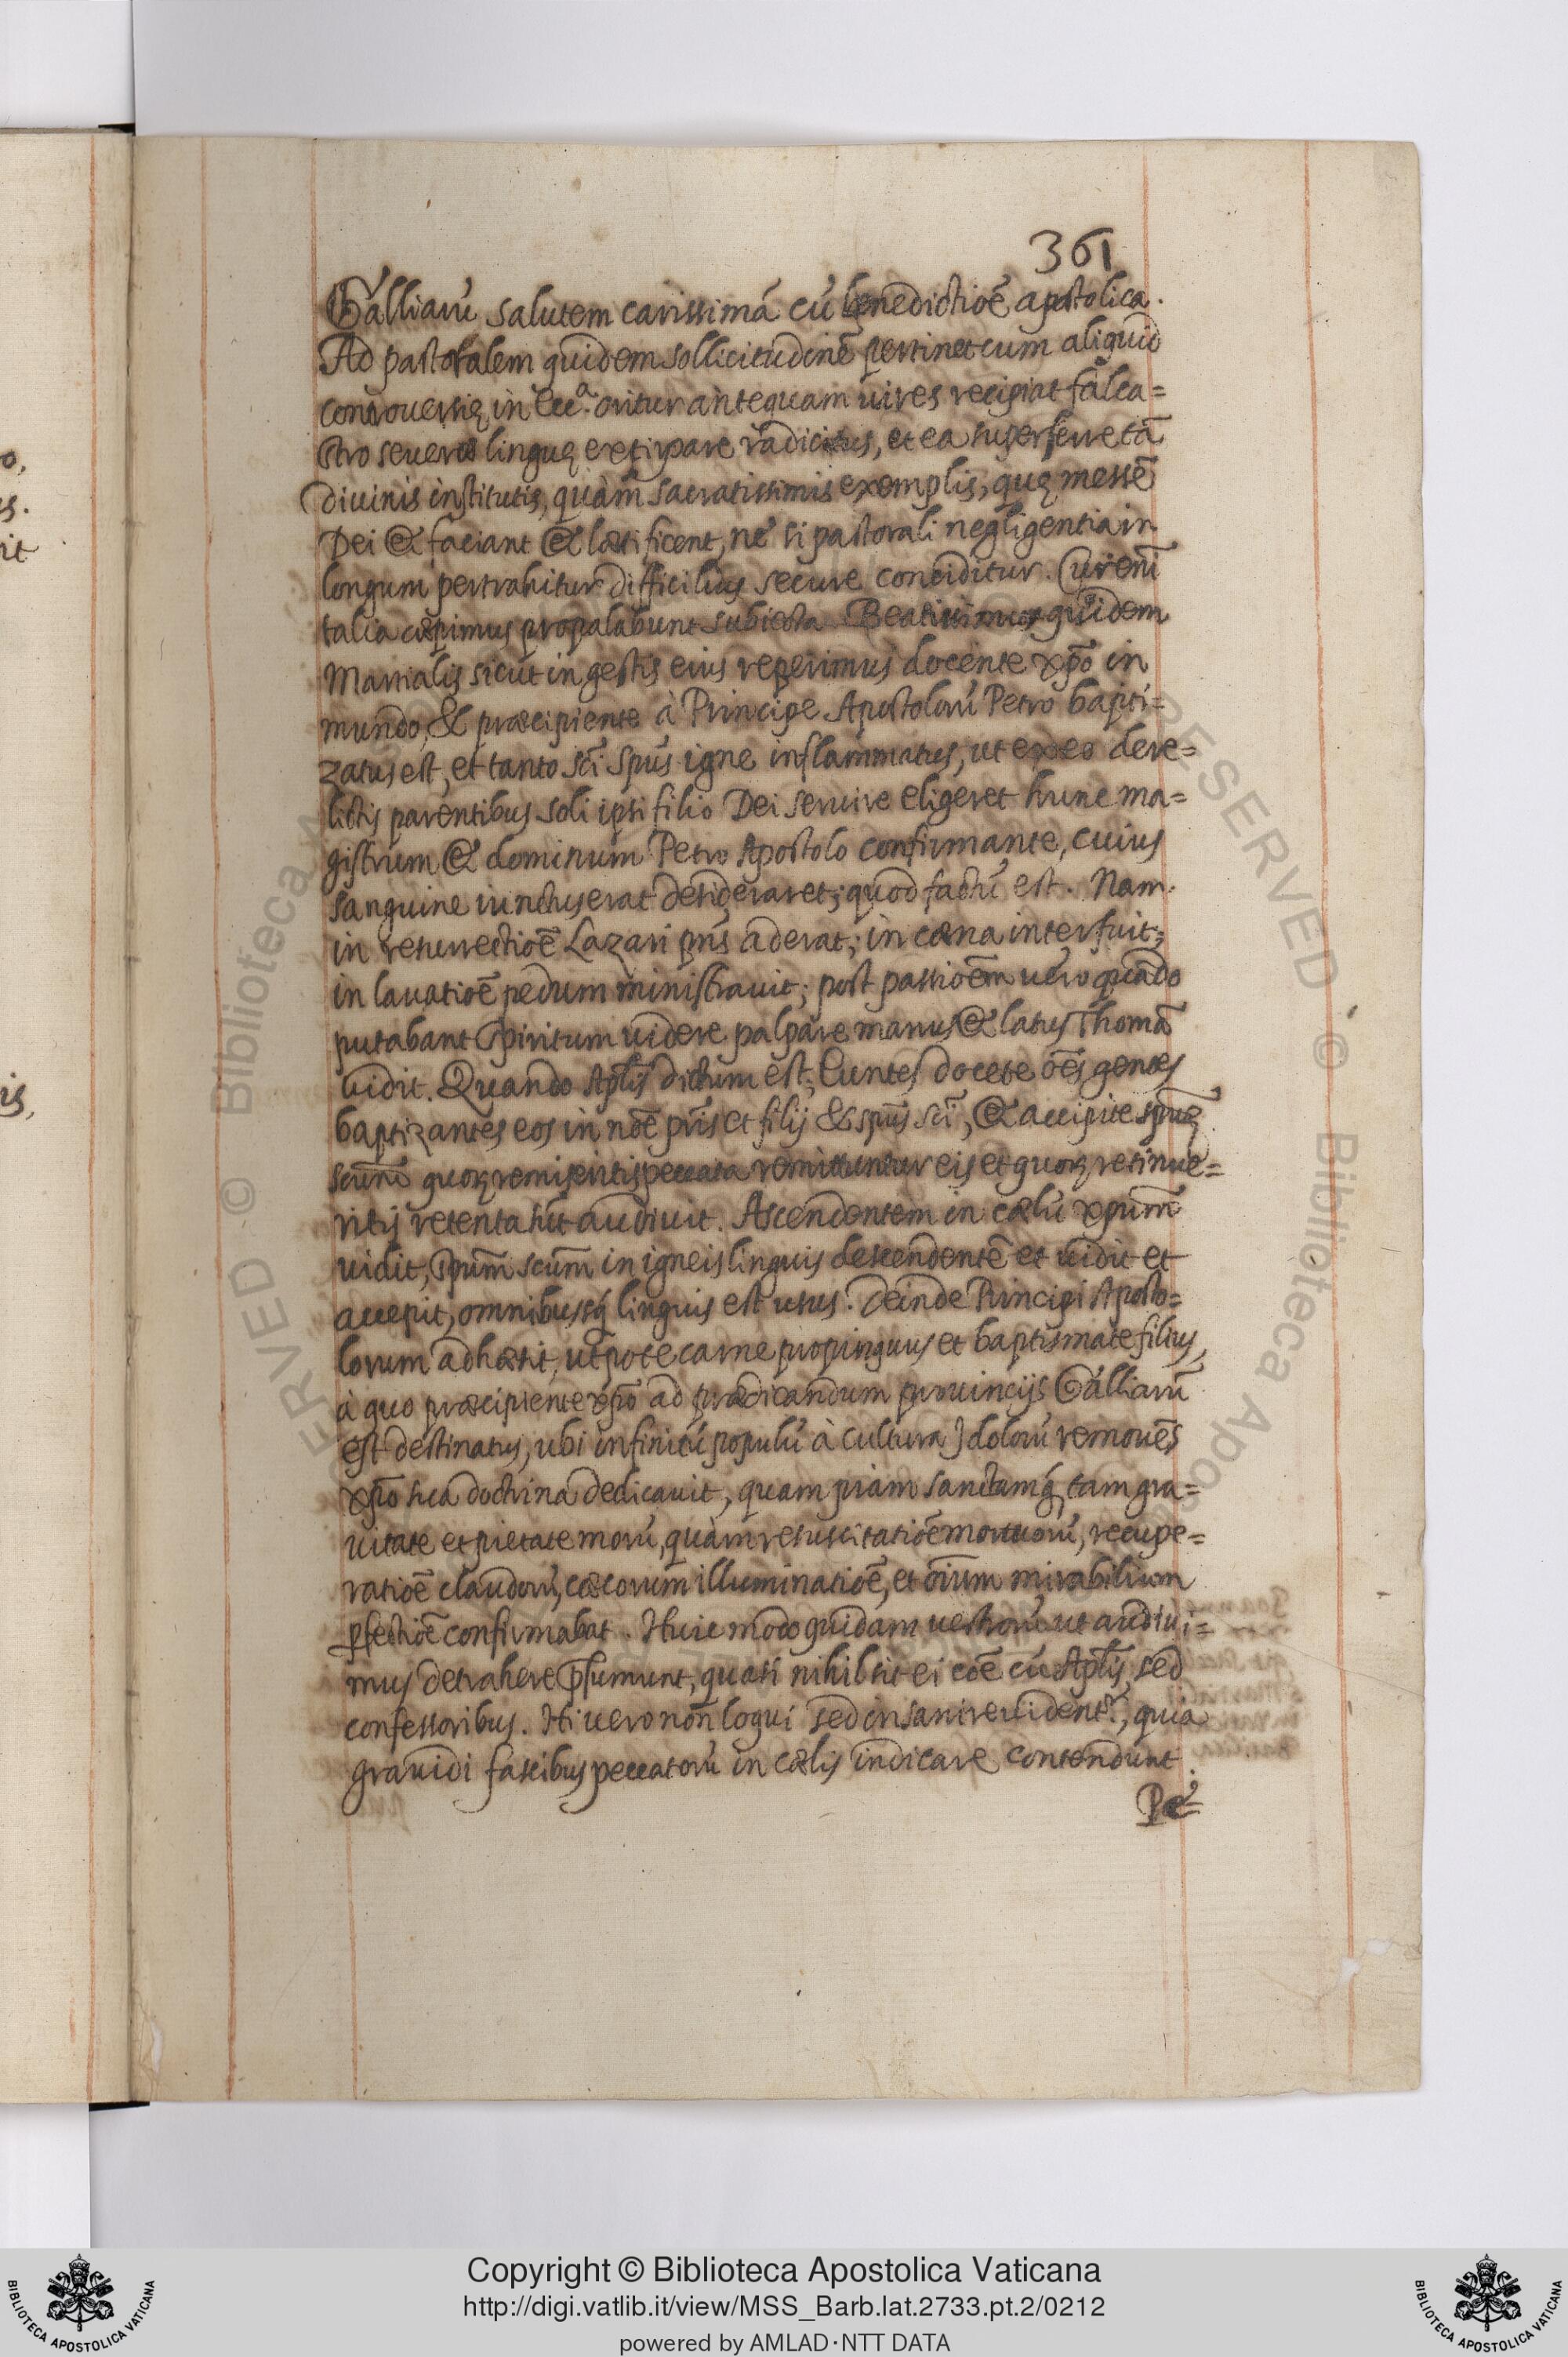 361
Galliarū salutem carissimā cū benedictioē apostolica.
Ad pastoralem quidem sollicitudinē pertinet cum aliquid
controuersię in Ecc.ª oritur antequam uires recipiat falca=
stro seueræ linguę extirpare radicitus, et ea superserere tā
diuinis institutis, quàm sacratissimis exemplis, quę messē
Dei & faciant & lætificent, ne si pastorali negligentia in
longum pertrahitur difficilius secure conciditur. Cur eni᷈
talia cœpimus propalabunt subiecta Beatissimus quidem
Martialis sicut in gestis eius reperimus docente xp̄o in
mundo, & præcipiente à Principe Apostolorū Petro bapti=
zatus est, et tanto sc̄i sp̄us igne inflammatus, ut ex eo dere=
lictis parentibus soli ipsi filio Dei seruire eligeret hunc ma=
gistrum & dominum Petro Apostolo confirmante, cuius
sanguine iunctus erat desideraret; quod factū est. Nam.
in resurrectioē Lazari p̄ns aderat; in cœna interfuit;
in lauatioē pedum ministrauit; post passioēm uero quādo
putabant Spiritum uidere palpare manus & latus Thomā
uidit. Quando Ap̄lis dictum est; Euntes docete oēs gentes
baptizantes eos in nōe p̄ris et filij & sp̄us sc̄i, & accipite
scūm quorū remiseritis peccata remittuntur eis et quorū retinue=
ritis retenta sūt audiuit. Ascendentem in cœlū xp̄um
uidit, Sp̄um scūm in igneis linguis descendentē et uidit et
accepit, omnibusq́ linguis est usus. Deinde Principi Aposto=
lorum adhæsit, utpote carne propinquus et baptismate filius,
à quo præcipiente xp̄o ad prædicandum prouincijs Galliarū
est destinatus, ubi infinitū populū à cultura Idolorū remouēs
xp̄o sua doctrina dedicauit, quam piam sanctamq́, tam gra=
uitate et pietate morū, quàm resuscitatioē mortuorū, recupe=
ratioē claudorū, cæcorum illuminatioē, et oīum mirabilium
ꝑfectioē confirmabat. Huic modo quidam uestrorū ut audiui=
mus detrahere p̄sumunt, quasi nihil sit ei cōe cū Ap̄lis, sed
confessoribus. Hi uero non loqui sed insanire uident.ʳ, quia
grauidi fascibus peccatorū in cœlis indicare contendunt.
Pe=
Copyright © Biblioteca Apostolica Vaticana
http://digi.vatlib.it/view/MSS_Barb.lat.2733.pt.2/0212
powered by AMLAD·NTT DATA